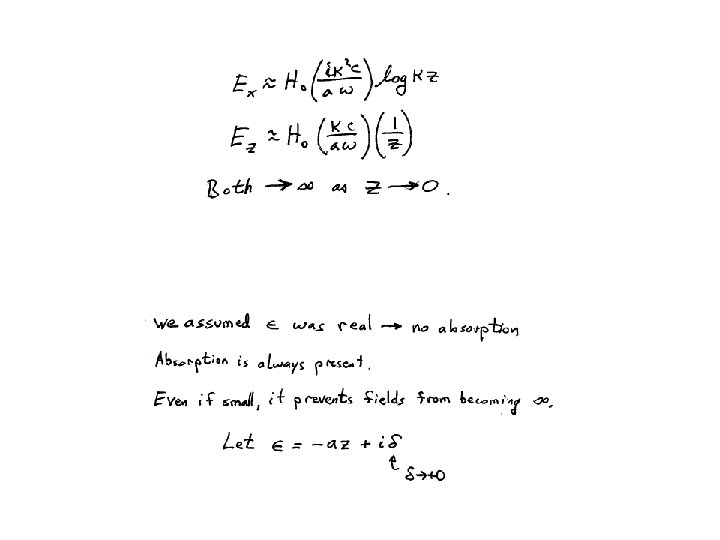 Eₓ ≈ H₀ (iκ²c / aω) log κz
E_z ≈ H₀ (κc / aω) (1 / z)
Both → ∞ as z → 0.
We assumed ε was real → no absorption
Absorption is always present.
Even if small, it prevents fields from becoming ∞.
Let ε = -az + iδ
↑ δ→+0